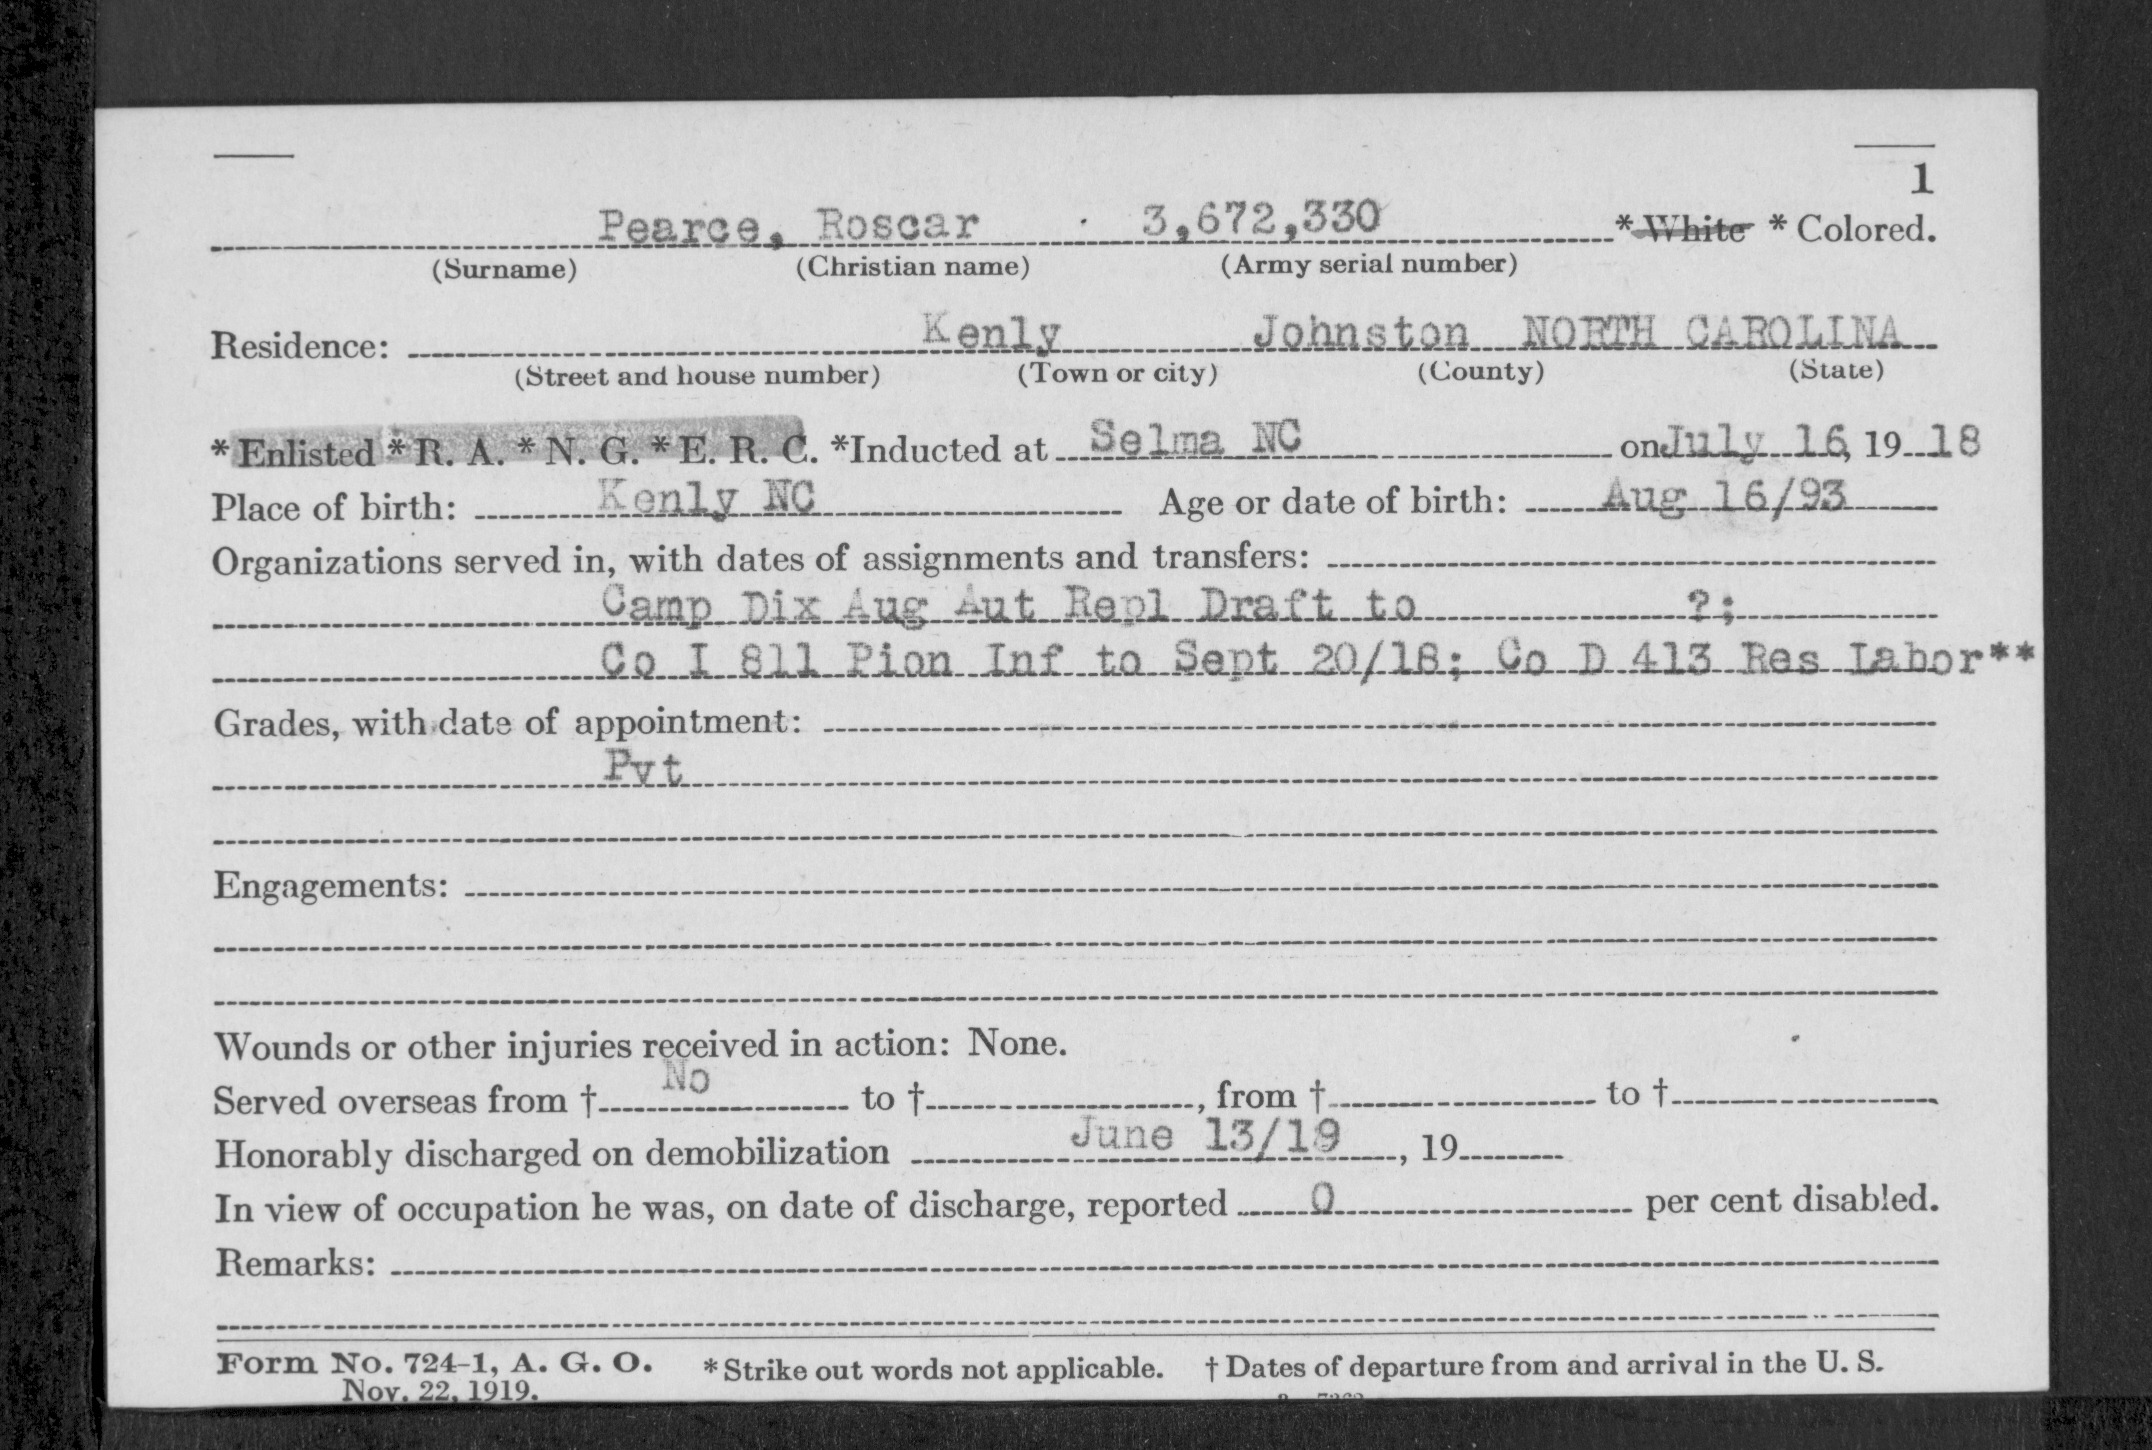 1
Pearce, Roscar 3,672,330 *White * Colored.
(Surname) (Christian name) (Army serial number)
Residence: Kenly Johnston NORTH CAROLINA
(Street and house number) (Town or city) (County) (State)
*Enlisted *R. A. *N. G. *E. R. C. *Inducted at Selma NC on July 16, 19 18
Place of birth: Kenly NC Age or date of birth: Aug 16/93
Organizations served in, with dates of assignments and transfers:
Camp Dix Aug Aut Repl Draft to ?;
Co I 811 Pion Inf to Sept 20/18; Co D 413 Res Labor**
Grades, with date of appointment:
Pvt
Engagements:
Wounds or other injuries received in action: None.
Served overseas from † No to †, from † to †
Honorably discharged on demobilization June 13/19, 19
In view of occupation he was, on date of discharge, reported 0 per cent disabled.
Remarks:
Form No. 724-1, A. G. O. *Strike out words not applicable. † Dates of departure from and arrival in the U. S.
Nov. 22, 1919.